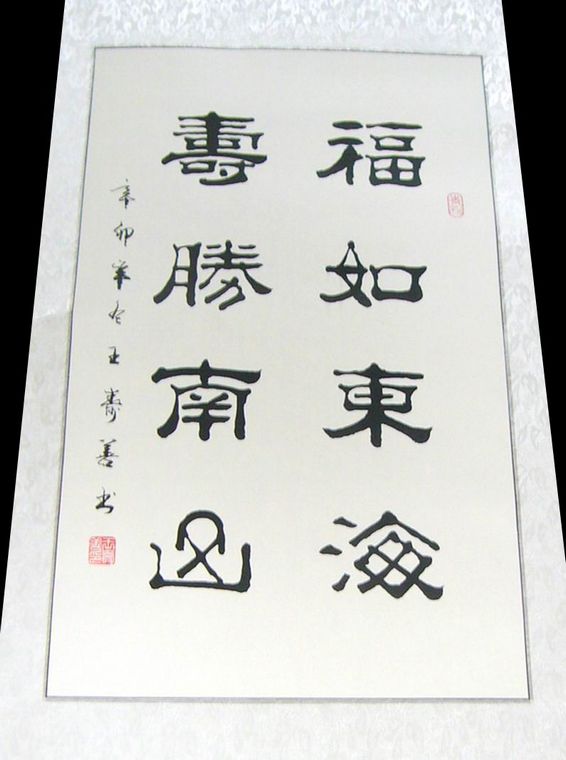 福如東海
壽勝南山
辛卯年冬王壽善书